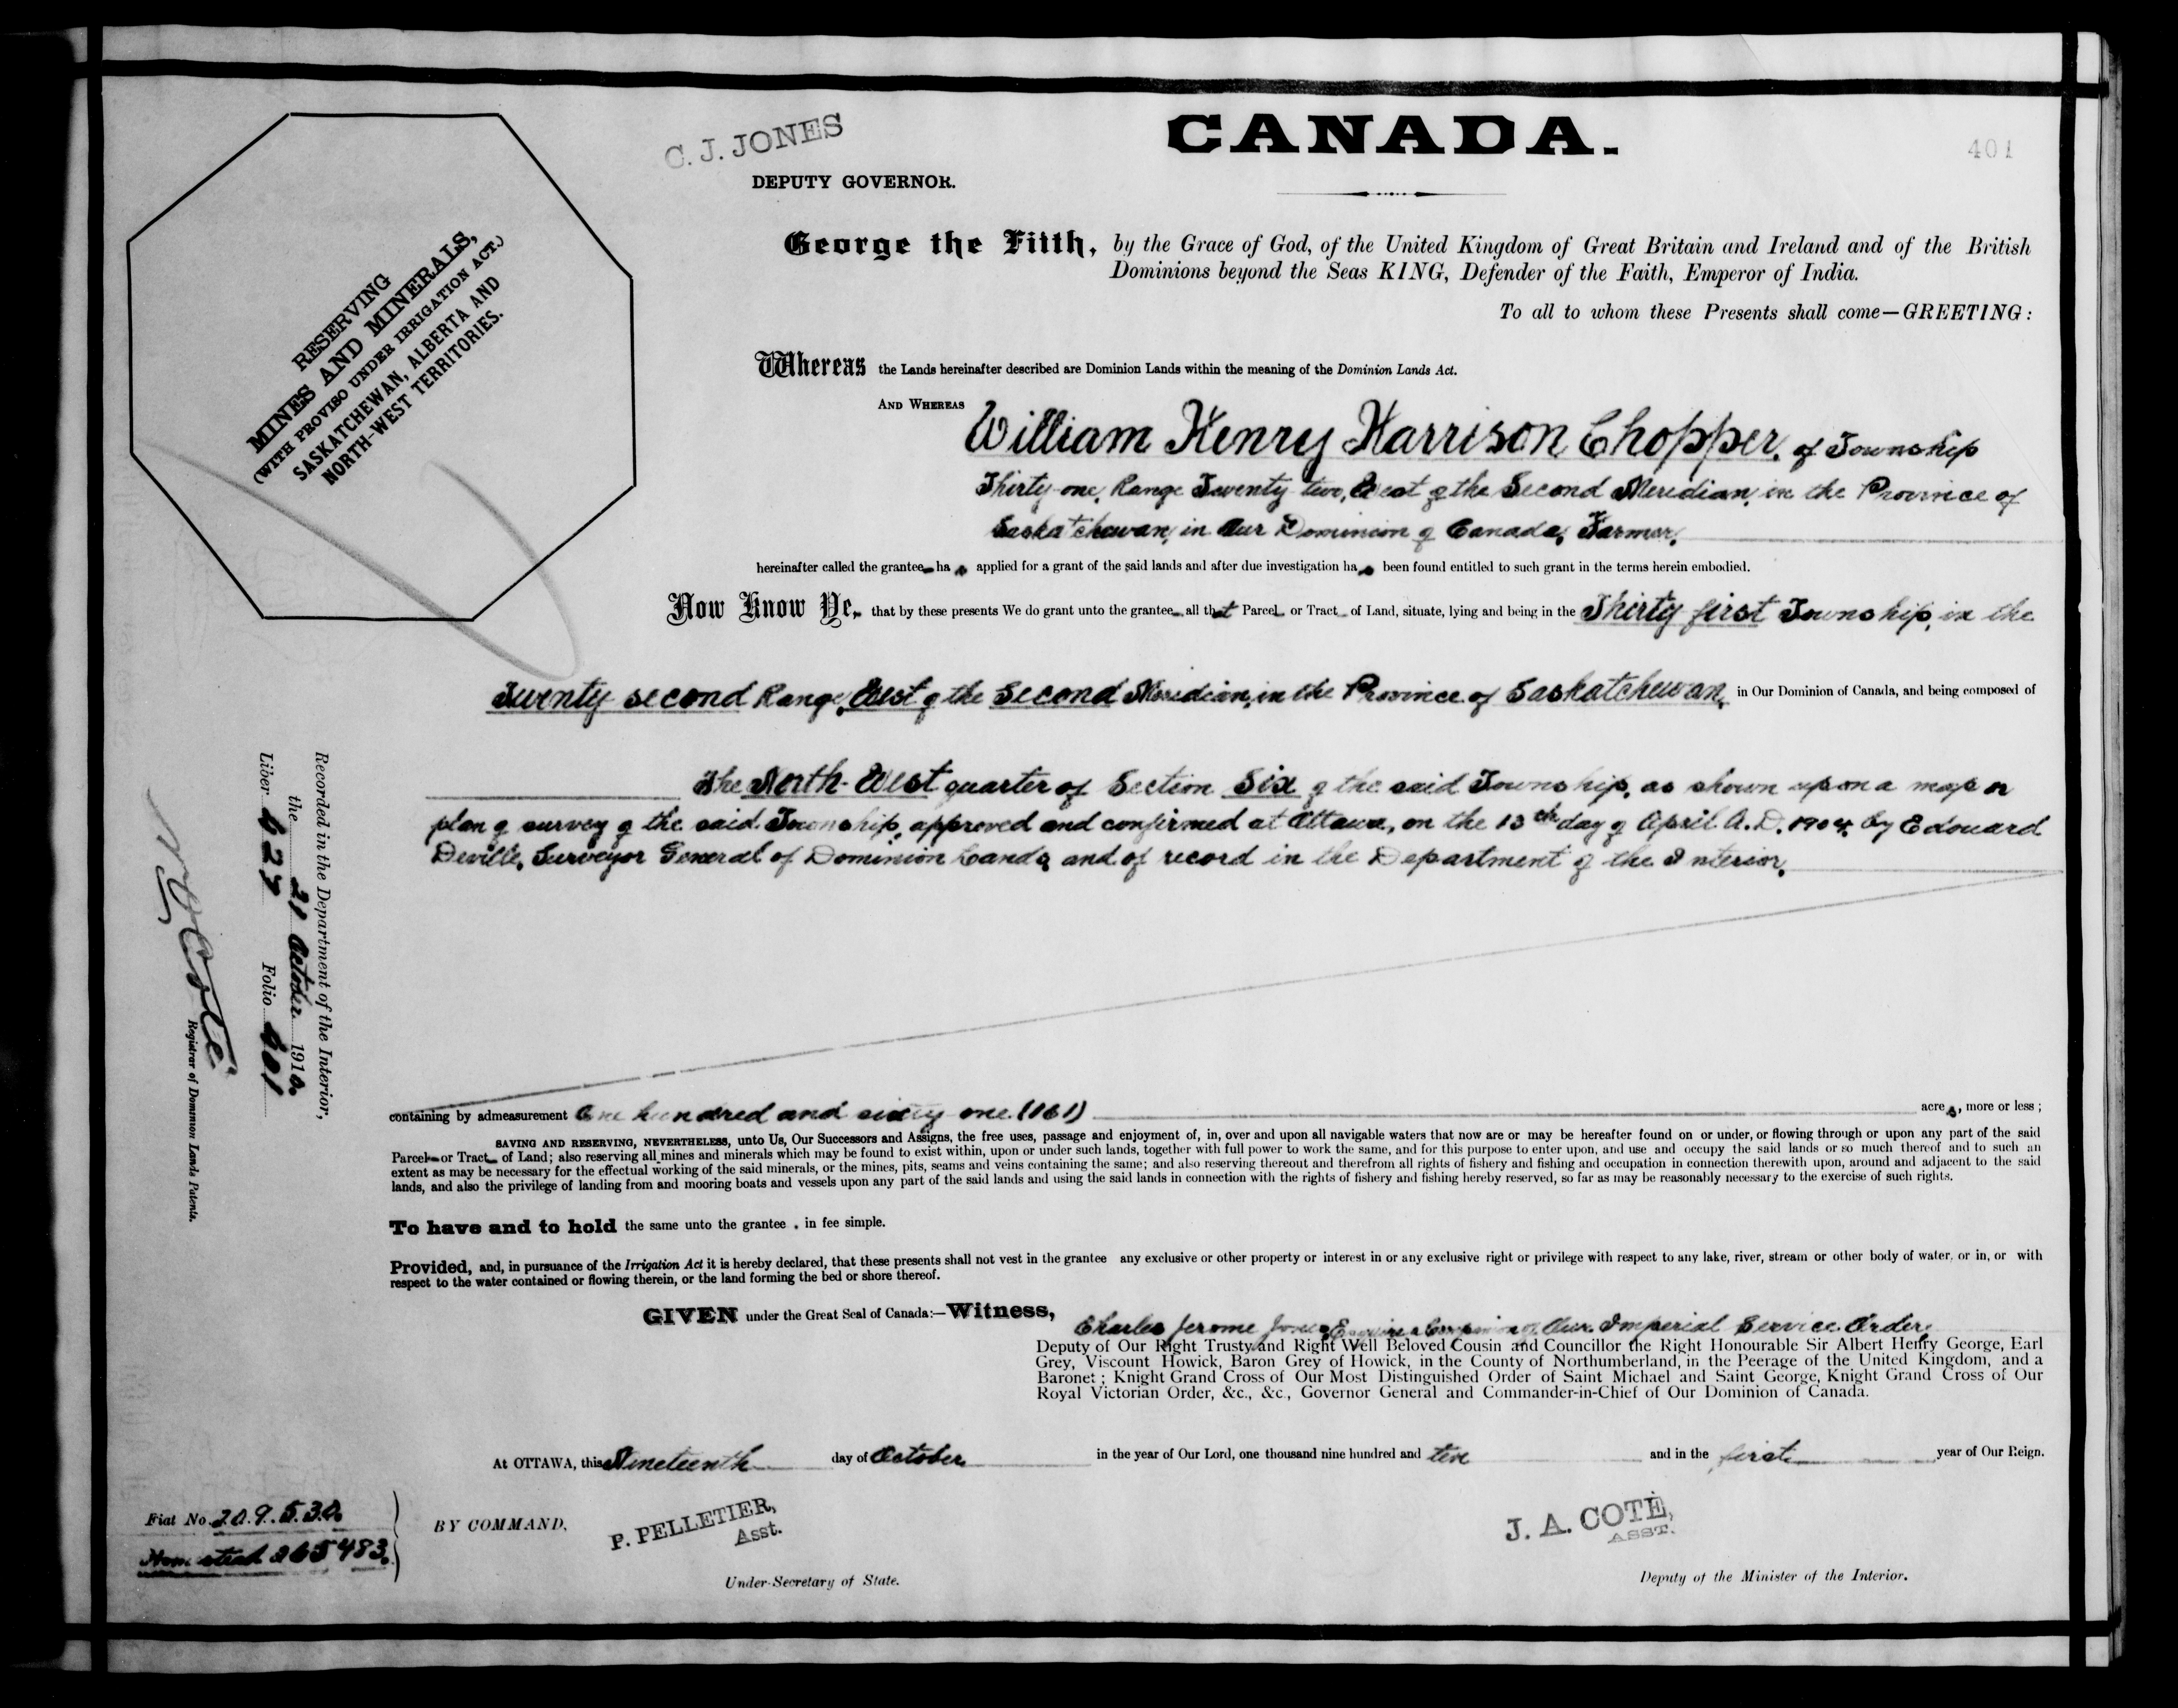 C. J. JONES
DEPUTY GOVERNOR.
CANADA.
401
RESERVING
MINES AND MINERALS,
(WITH PROVISO UNDER IRRIGATION ACT.)
SASKATCHEWAN, ALBERTA AND
NORTH-WEST TERRITORIES.
George the Fifth, by the Grace of God, of the United Kingdom of Great Britain and Ireland and of the British
Dominions beyond the Seas KING, Defender of the Faith, Emperor of India.
To all to whom these Presents shall come—GREETING:
Whereas the Lands hereinafter described are Dominion Lands within the meaning of the Dominion Lands Act.
AND WHEREAS William Henry Harrison Chopper, of Township
Thirty-one, Range Twenty-two, West of the Second Meridian, in the Province of
Saskatchewan, in Our Dominion of Canada, Farmer,
hereinafter called the grantee has applied for a grant of the said lands and after due investigation has been found entitled to such grant in the terms herein embodied.
Now Know Ye, that by these presents We do grant unto the grantee all that Parcel or Tract of Land, situate, lying and being in the Thirty first Township, in the
Twenty second Range, West of the Second Meridian, in the Province of Saskatchewan, in Our Dominion of Canada, and being composed of
The North-West quarter of Section Six of the said Township, as shown upon a map or
plan of survey of the said Township, approved and confirmed at Ottawa, on the 13th day of April A.D. 1904, by Edouard
Deville, Surveyor General of Dominion Lands, and of record in the Department of the Interior,
containing by admeasurement One hundred and sixty one (161) acres, more or less;
SAVING AND RESERVING, NEVERTHELESS, unto Us, Our Successors and Assigns, the free uses, passage and enjoyment of, in, over and upon all navigable waters that now are or may be hereafter found on or under, or flowing through or upon any part of the said
Parcel or Tract of Land; also reserving all mines and minerals which may be found to exist within, upon or under such lands, together with full power to work the same, and for this purpose to enter upon, and use and occupy the said lands or so much thereof and to such an
extent as may be necessary for the effectual working of the said minerals, or the mines, pits, seams and veins containing the same; and also reserving thereout and therefrom all rights of fishery and fishing and occupation in connection therewith upon, around and adjacent to the said
lands, and also the privilege of landing from and mooring boats and vessels upon any part of the said lands and using the said lands in connection with the rights of fishery and fishing hereby reserved, so far as may be reasonably necessary to the exercise of such rights.
To have and to hold the same unto the grantee , in fee simple.
Provided, and, in pursuance of the Irrigation Act it is hereby declared, that these presents shall not vest in the grantee any exclusive or other property or interest in or any exclusive right or privilege with respect to any lake, river, stream or other body of water, or in, or with
respect to the water contained or flowing therein, or the land forming the bed or shore thereof.
GIVEN under the Great Seal of Canada:—Witness,
Charles Jerome Jones, Esquire, a Companion of Our Imperial Service Order,
Deputy of Our Right Trusty and Right Well Beloved Cousin and Councillor the Right Honourable Sir Albert Henry George, Earl
Grey, Viscount Howick, Baron Grey of Howick, in the County of Northumberland, in the Peerage of the United Kingdom, and a
Baronet; Knight Grand Cross of Our Most Distinguished Order of Saint Michael and Saint George, Knight Grand Cross of Our
Royal Victorian Order, &c., &c., Governor General and Commander-in-Chief of Our Dominion of Canada.
At OTTAWA, this Nineteenth day of October in the year of Our Lord, one thousand nine hundred and ten and in the first year of Our Reign.
Fiat No. 209530
Homestead 265483
BY COMMAND,
P. PELLETIER,
Asst.
Under-Secretary of State.
J. A. COTÉ,
ASST.
Deputy of the Minister of the Interior.
Recorded in the Department of the Interior,
the 21 October 1910.
Liber 623 Folio 601
Registrar of Dominion Lands Patents.